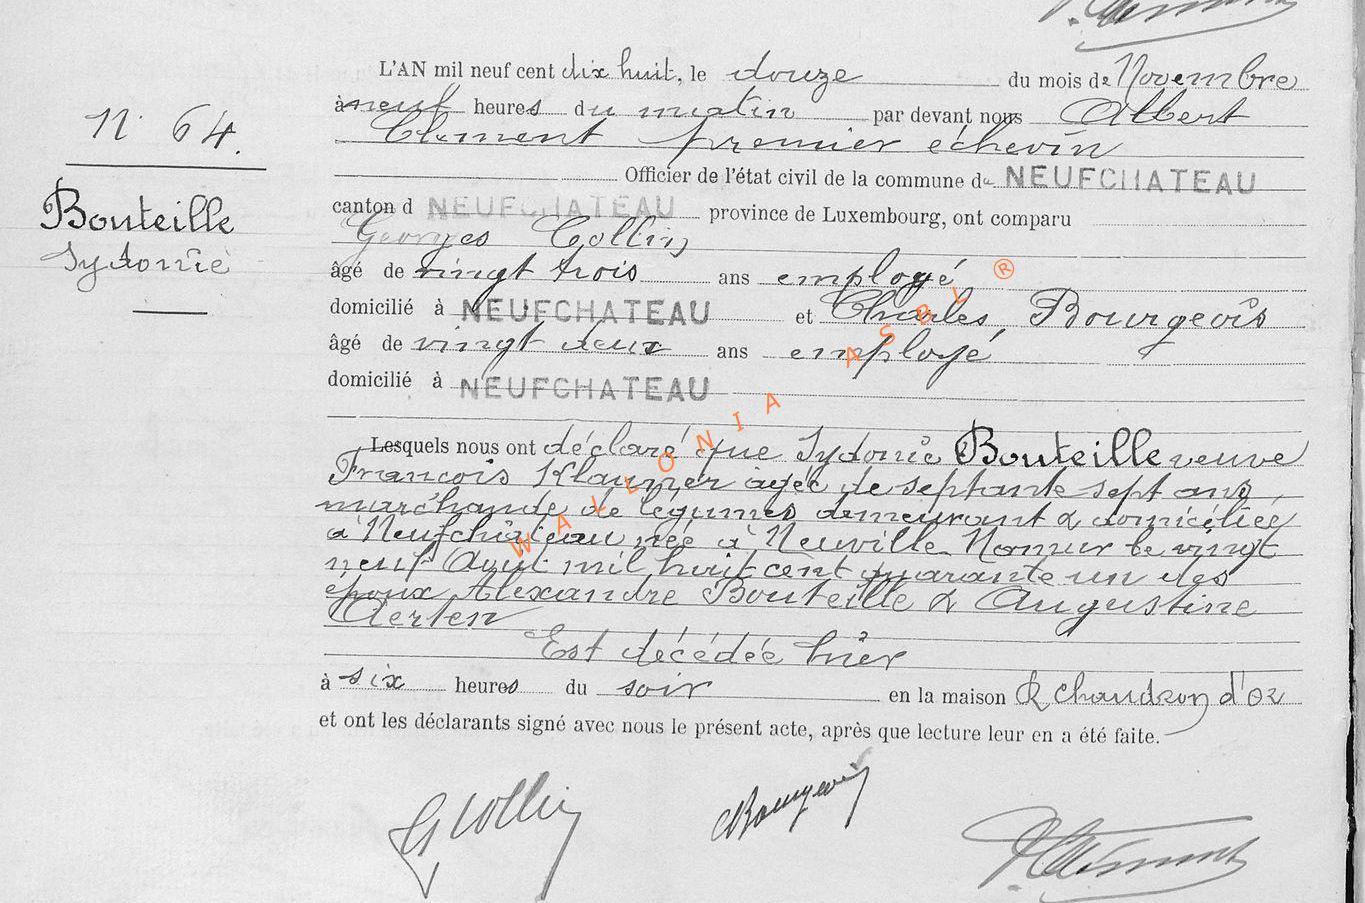 N° 64.
Bouteille
Sydonie
L'AN mil neuf cent dix huit, le douze du mois de Novembre
à neuf heures du matin par devant nous Albert
Clément premier échevin
Officier de l'état civil de la commune de NEUFCHATEAU
canton d NEUFCHATEAU province de Luxembourg, ont comparu
Georges Collin
âgé de vingt trois ans employé
domicilié à NEUFCHATEAU et Charles Bourgeois
âgé de vingt deux ans employé
domicilié à NEUFCHATEAU
Lesquels nous ont déclaré que Sydonie Bouteille veuve
François Klauner agée de septante sept ans
marchande de légumes demeurant & domiciliée
à Neufchâteau née à Neuville Namur le vingt
neuf Août mil huit cent quarante un des
époux Alexandre Bouteille & Augustine
Aerten
Est décédée hier
à six heures du soir en la maison R chaudron d'or
et ont les déclarants signé avec nous le présent acte, après que lecture leur en a été faite.
G Collin
CBourgeois
WALLONIA ASBL ®